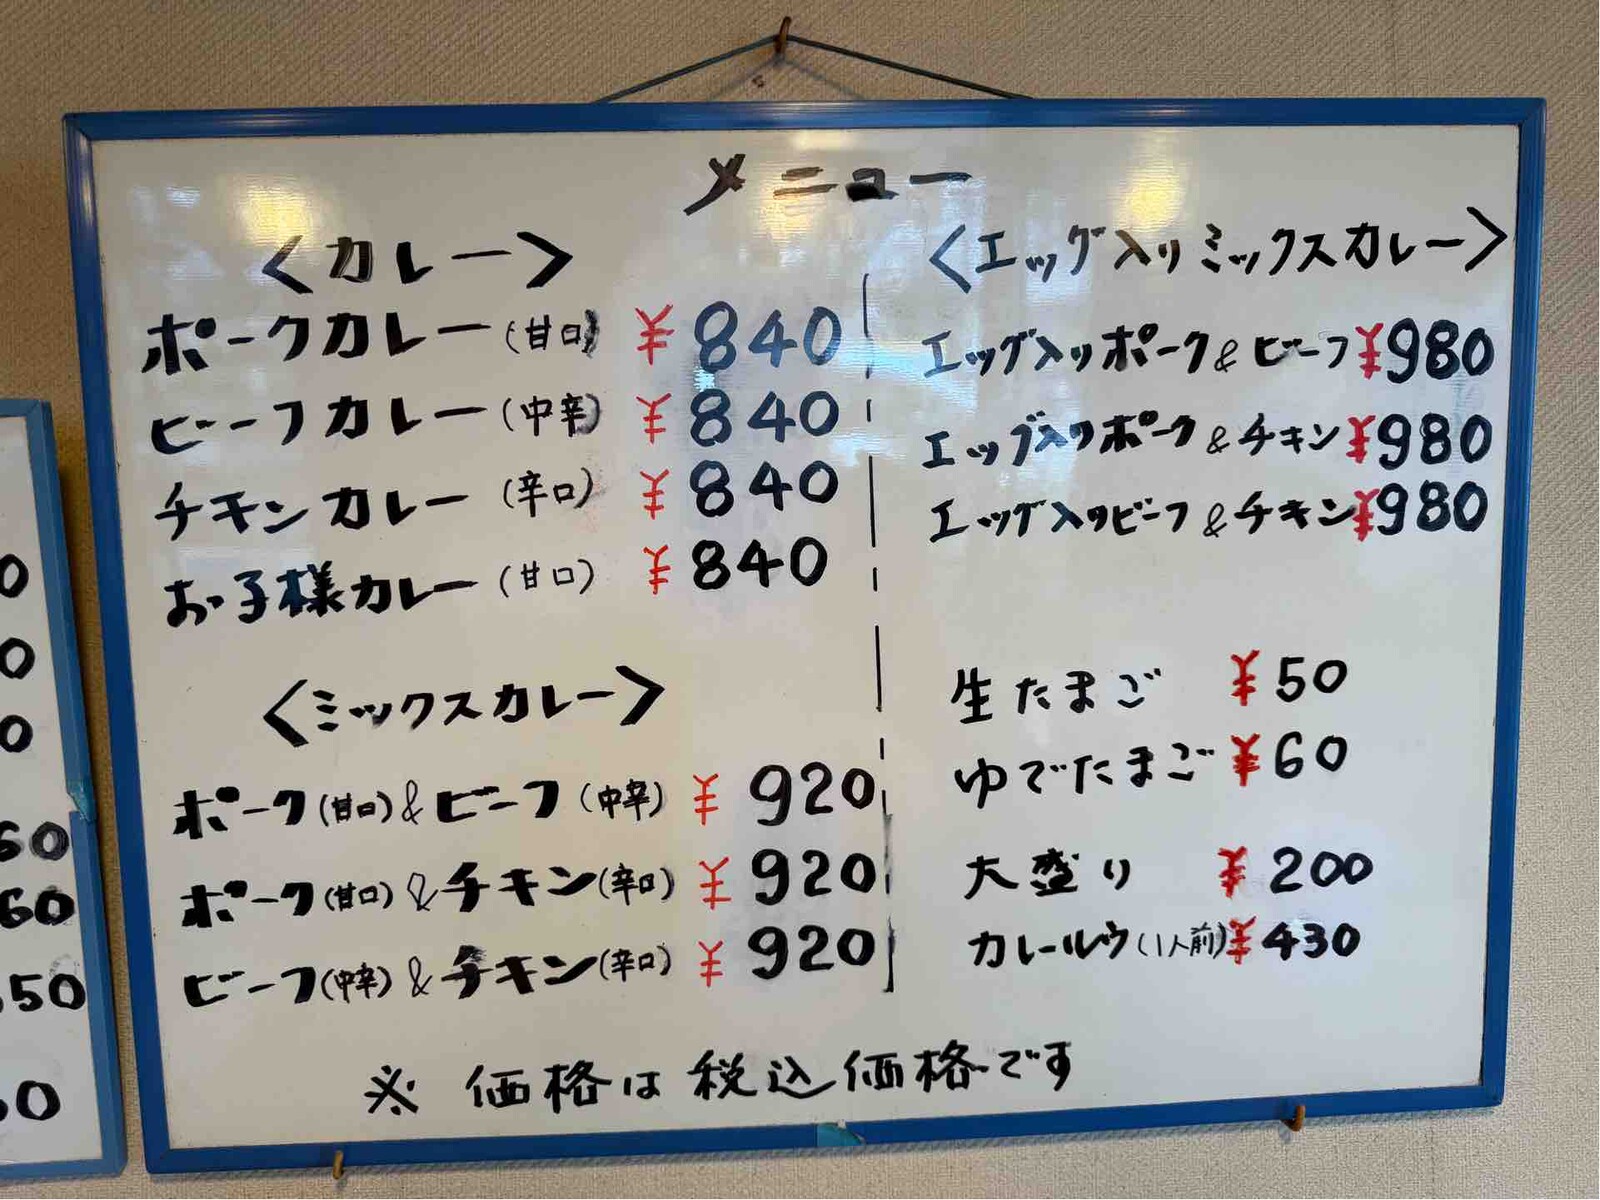 メニュー
〈カレー〉
ポークカレー(甘口) ¥840
ビーフカレー(中辛) ¥840
チキンカレー(辛口) ¥840
お子様カレー(甘口) ¥840
〈ミックスカレー〉
ポーク(甘口)&ビーフ(中辛) ¥920
ポーク(甘口)&チキン(辛口) ¥920
ビーフ(中辛)&チキン(辛口) ¥920
〈エッグ入りミックスカレー〉
エッグ入りポーク&ビーフ ¥980
エッグ入りポーク&チキン ¥980
エッグ入りビーフ&チキン ¥980
生たまご ¥50
ゆでたまご ¥60
大盛り ¥200
カレールウ(1人前) ¥430
※ 価格は税込価格です